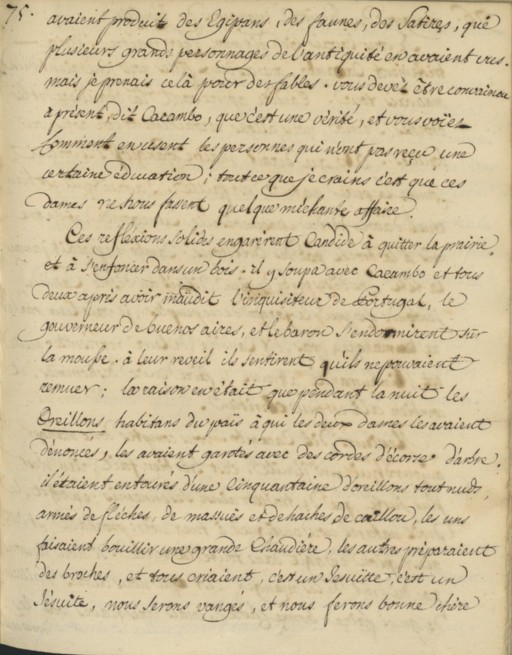 75.
avaient produit des Egipans, des faunes, des Satires, que
plusieurs grands personnages de l'antiquité en avaient vus.
mais je prenais cela pour des fables. vous devez être convaincu
a présent, dit Cacambo, que c'est une vérité, et vous voïez
Comment en usent les personnes qui n'ont pas reçu une
certaine éducation; tout ce que je crains c'est que ces
dames ne nous fassent quelque méchante affaire.
Ces refléxions solides engagèrent Candide à quitter la prairie,
et à s'enfoncer dans un bois. il y soupa avec Cacambo et tous
deux après avoir maudit l'inquisiteur de Portugal, le
gouverneur de buenos aires, et le baron s'endormirent sur
la mousse. à leur reveil ils sentirent qu'ils ne pouvaient
remuer; la raison en était que pendant la nuit les
Oreillons habitans du païs à qui les deux dames les avaient
dénoncés, les avaient garotés avec des cordes d'écorce d'arbre.
ils étaient entourés d'une Cinquantaine d'oreillons tout nuds,
armés de fléches, de massuës et de haches de caillou, les uns
faisaient bouillir une grande Chaudière, les autres préparaient
des broches, et tous criaient, c'est un Jesuitte, c'est un
Jésuite, nous serons vangés, et nous ferons bonne chère